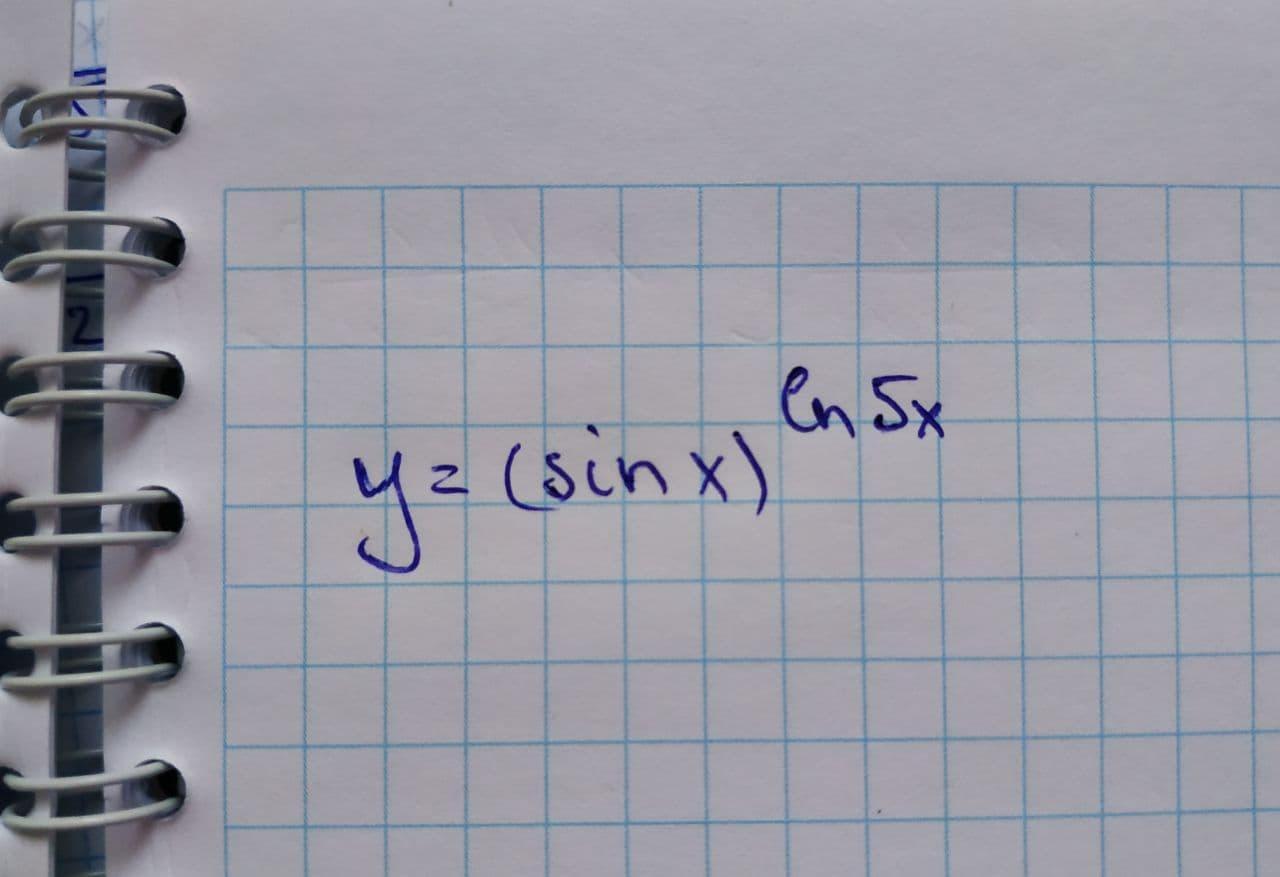 y = (sin x)^ln 5x
2